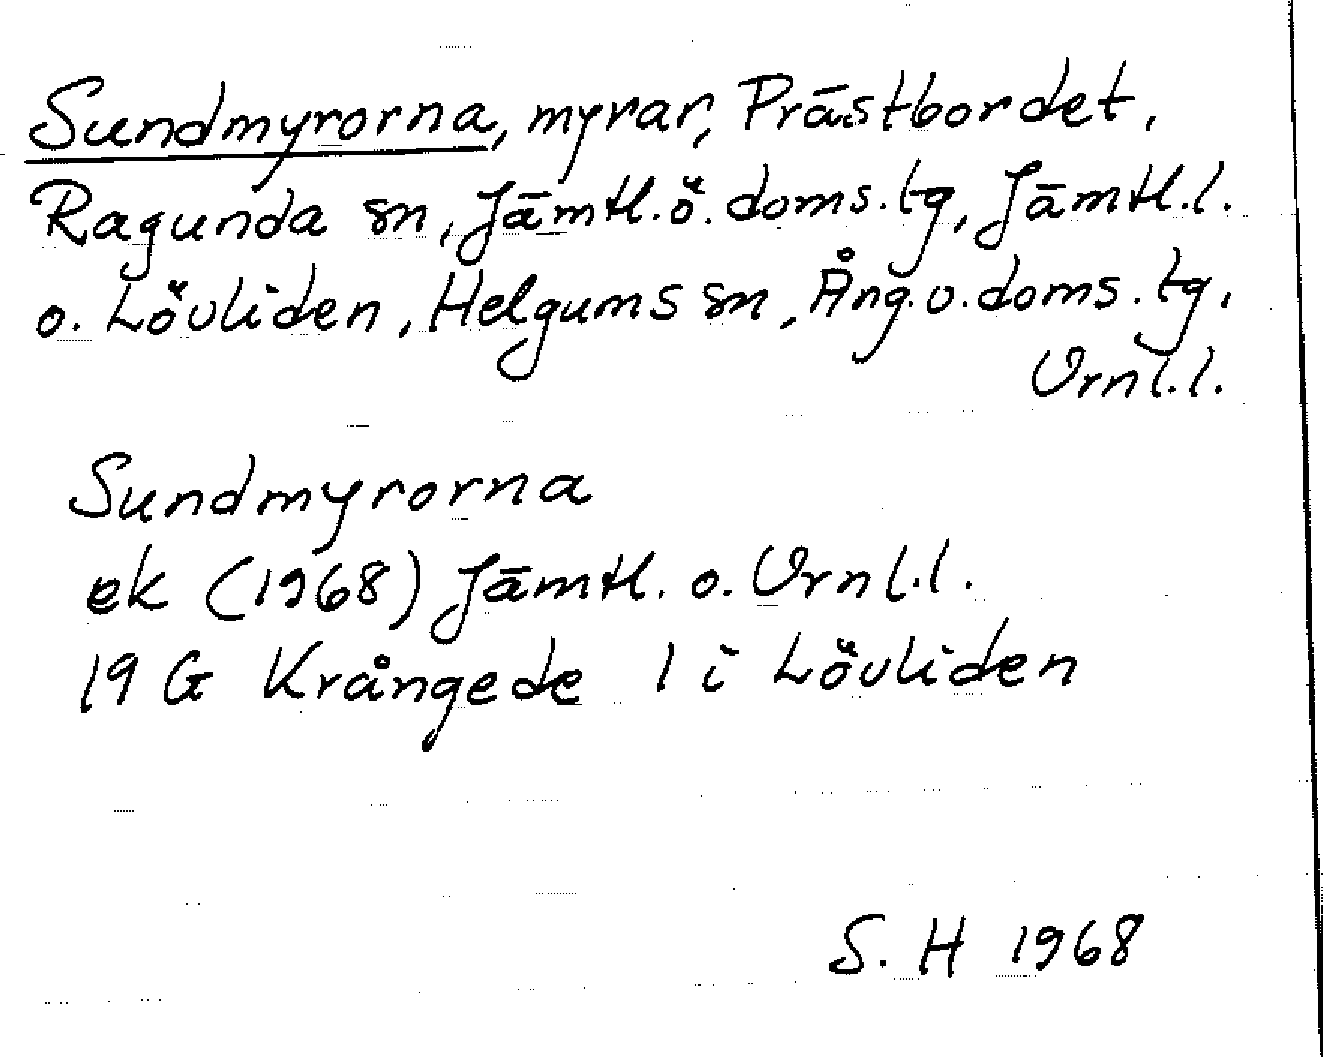 Sundmyrorna, myrar, Prästbordet,
Ragunda sn, Jämtl. ö. doms. tg, Jämtl. l.
o. Lövliden, Helgums sn, Ång. v. doms. tg,
Vrnl. l.
Sundmyrorna
ek (1968) Jämtl. o. Vrnl. l.
19 G Krångede 1 i Lövliden
S. H 1968